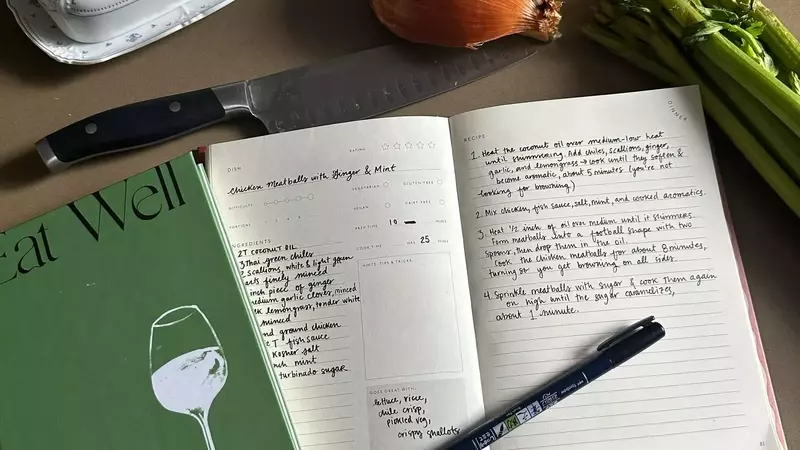 Eat Well
DISH
RATING
Chicken Meatballs with Ginger & Mint
DIFFICULTY
VEGETARIAN
GLUTEN FREE
VEGAN
DAIRY FREE
PORTIONS
PREP TIME 10
COOK TIME 25
INGREDIENTS
2T COCONUT OIL
3 Thai green chiles
2 Scallions, white & light green
finely minced
inch piece of ginger
medium garlic cloves, minced
lemongrass, tender white
minced
ground chicken
T fish sauce
Kosher salt
mint
turbinado sugar
NOTES, TIPS & TRICKS
GOES GREAT WITH...
lettuce, rice,
chile crisp,
pickled veg,
crispy shallots
DINNER
RECIPE
1. Heat the coconut oil over medium-low heat
until shimmering. Add chiles, scallions, ginger,
garlic, and lemongrass → cook until they soften &
become aromatic, about 5 minutes (you're not
looking for browning.)
2. Mix chicken, fish sauce, salt, mint, and cooked aromatics.
3. Heat 1/2 inch of oil over medium until it shimmers
Form meatballs into a football shape with two
spoons, then drop them in the oil.
Cook the chicken meatballs for about 8 minutes,
turning so you get browning on all sides.
4. Sprinkle meatballs with sugar & cook them again
on high until the sugar caramelizes,
about 1 minute.